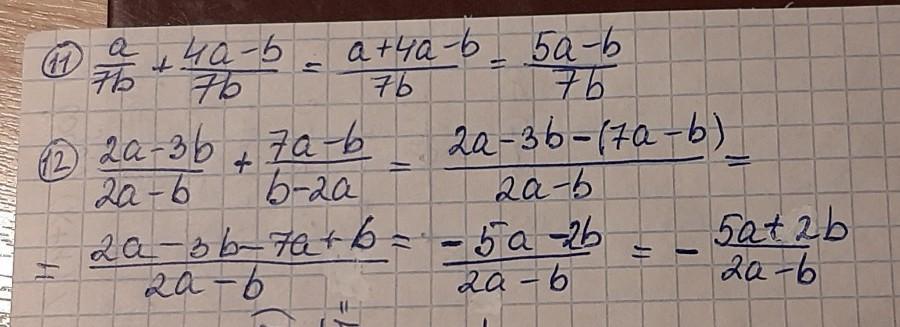 11 a/7b + 4a-b/7b = a+4a-b/7b = 5a-b/7b
12 2a-3b/2a-b + 7a-b/b-2a = 2a-3b-(7a-b)/2a-b =
= 2a-3b-7a+b/2a-b = -5a-2b/2a-b = - 5a+2b/2a-b